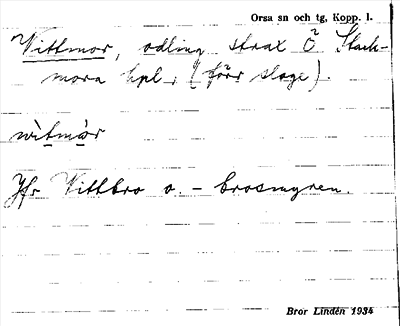 Orsa sn och tg, Kopp. l.
Vittmor, odling strax Ö Stack-
mora hpl. (förr sloge).
wìtmår
Jfr Vittbro o. -brosmyren.
Bror Lindén 1934